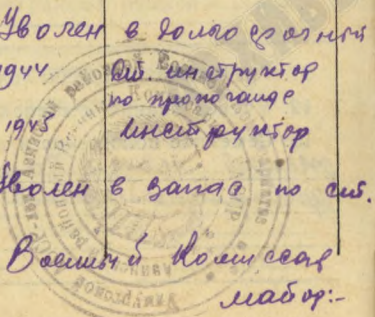 Уволен в долгосрочный
1944 Ст. инструктор
по пропоганде
1945 инструктор
Уволен в запас по ст.
Военный Комиссар
майор:-